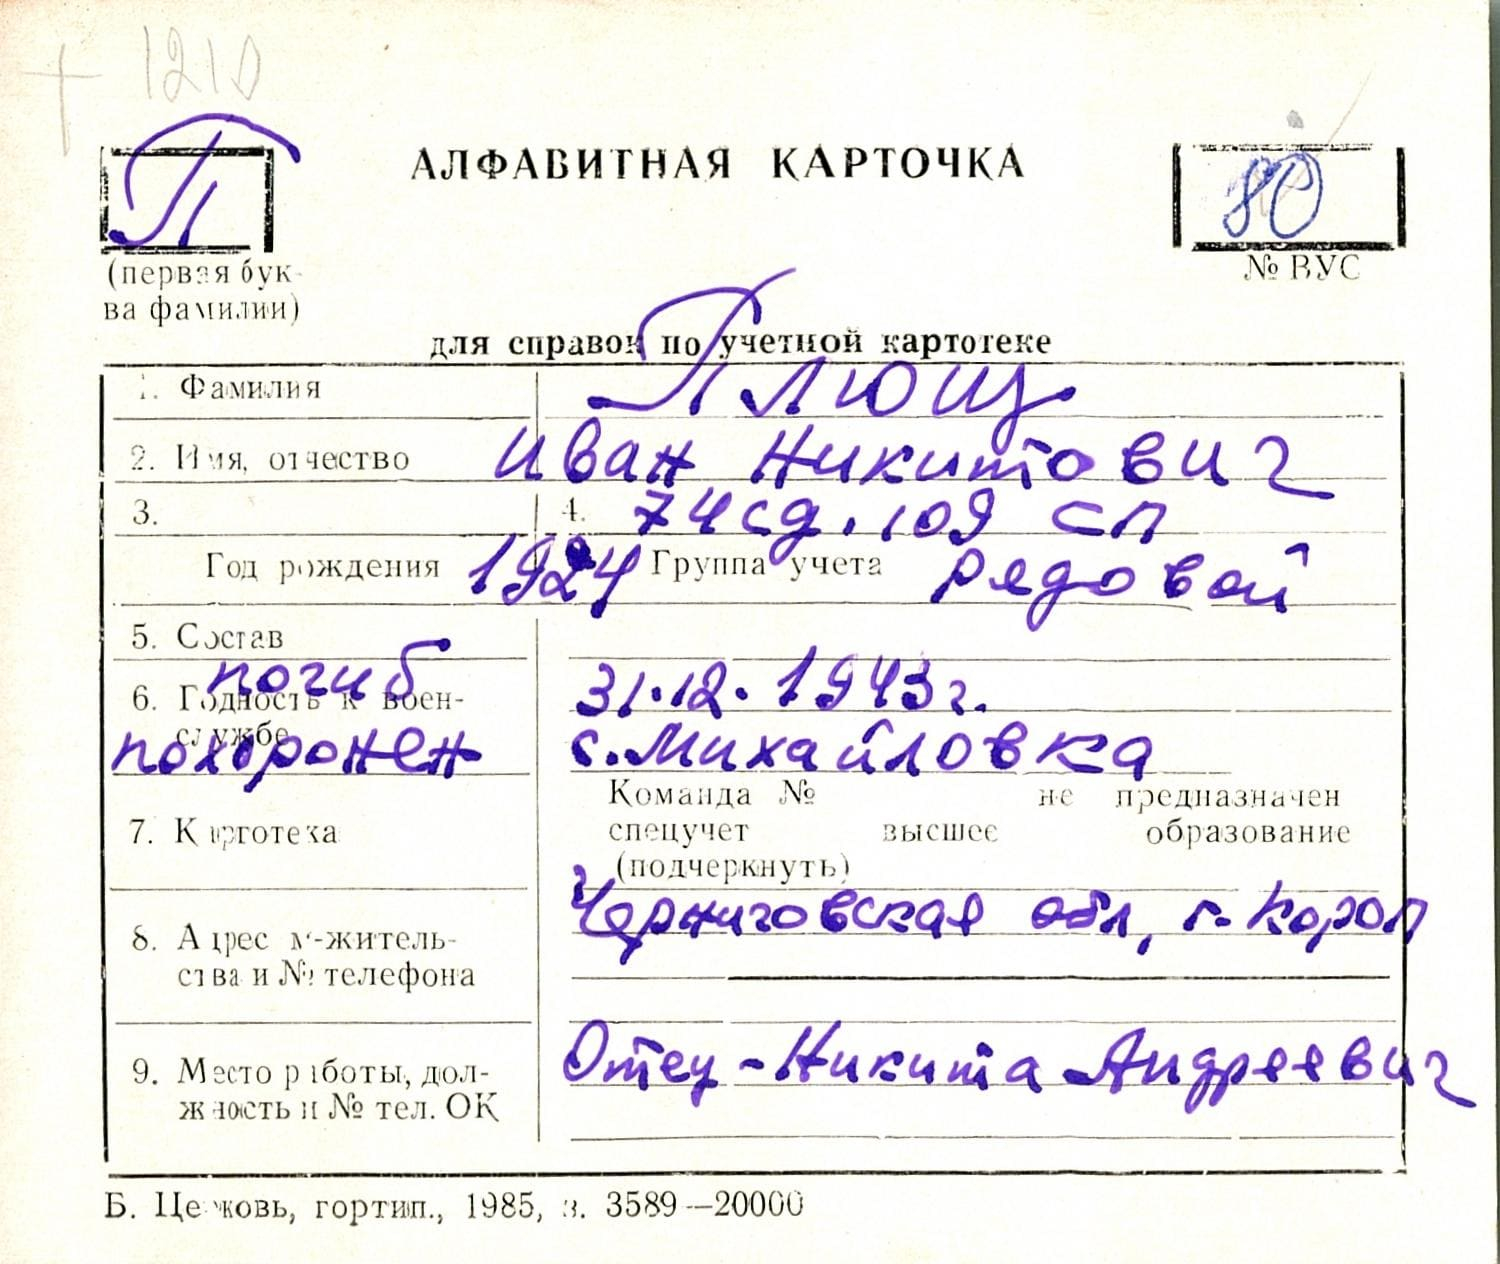 1210
П
АЛФАВИТНАЯ КАРТОЧКА
80
(первая бук-
ва фамилии)
№ ВУС
для справок по учетной картотеке
1. Фамилия Плющ
2. Имя, отчество Иван Никитович
3. 4. 74 сд. 109 сп
Год рождения 1924 Группа учета рядовой
5. Состав
погиб 31.12.1943г.
6. Годность к воен-
службе
похоронен с. Михайловка
Команда № не предназначен
7. Картотека спецучет высшее образование
(подчеркнуть)
Черниговская обл, г. Короп
8. Адрес м-житель-
ства и № телефона
Отец - Никита Андреевич
9. Место работы, дол-
жность и № тел. ОК
Б. Церковь, гортип., 1985, з. 3589—20000